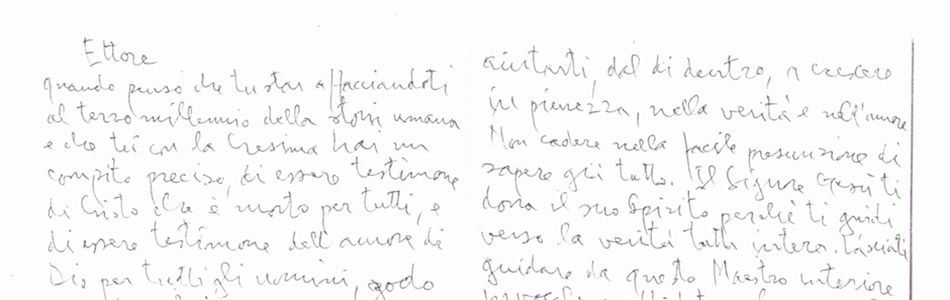 Ettore
quando penso che tu stai affacciandoti
al terzo millennio della storia umana
e che tu con la Cresima hai un
compito preciso, di essere testimone
di Cristo che è morto per tutti, e
di essere testimone dell'amore di
Dio per tutti gli uomini, godo
aiutarti, dal di dentro, a crescere
in pienezza, nella verità e nell'amore
Non cadere nella facile presunzione di
sapere già tutto. Il Signore Gesù ti
dona il suo Spirito perché ti guidi
verso la verità tutta intera. Lasciati
guidare da questo Maestro interiore